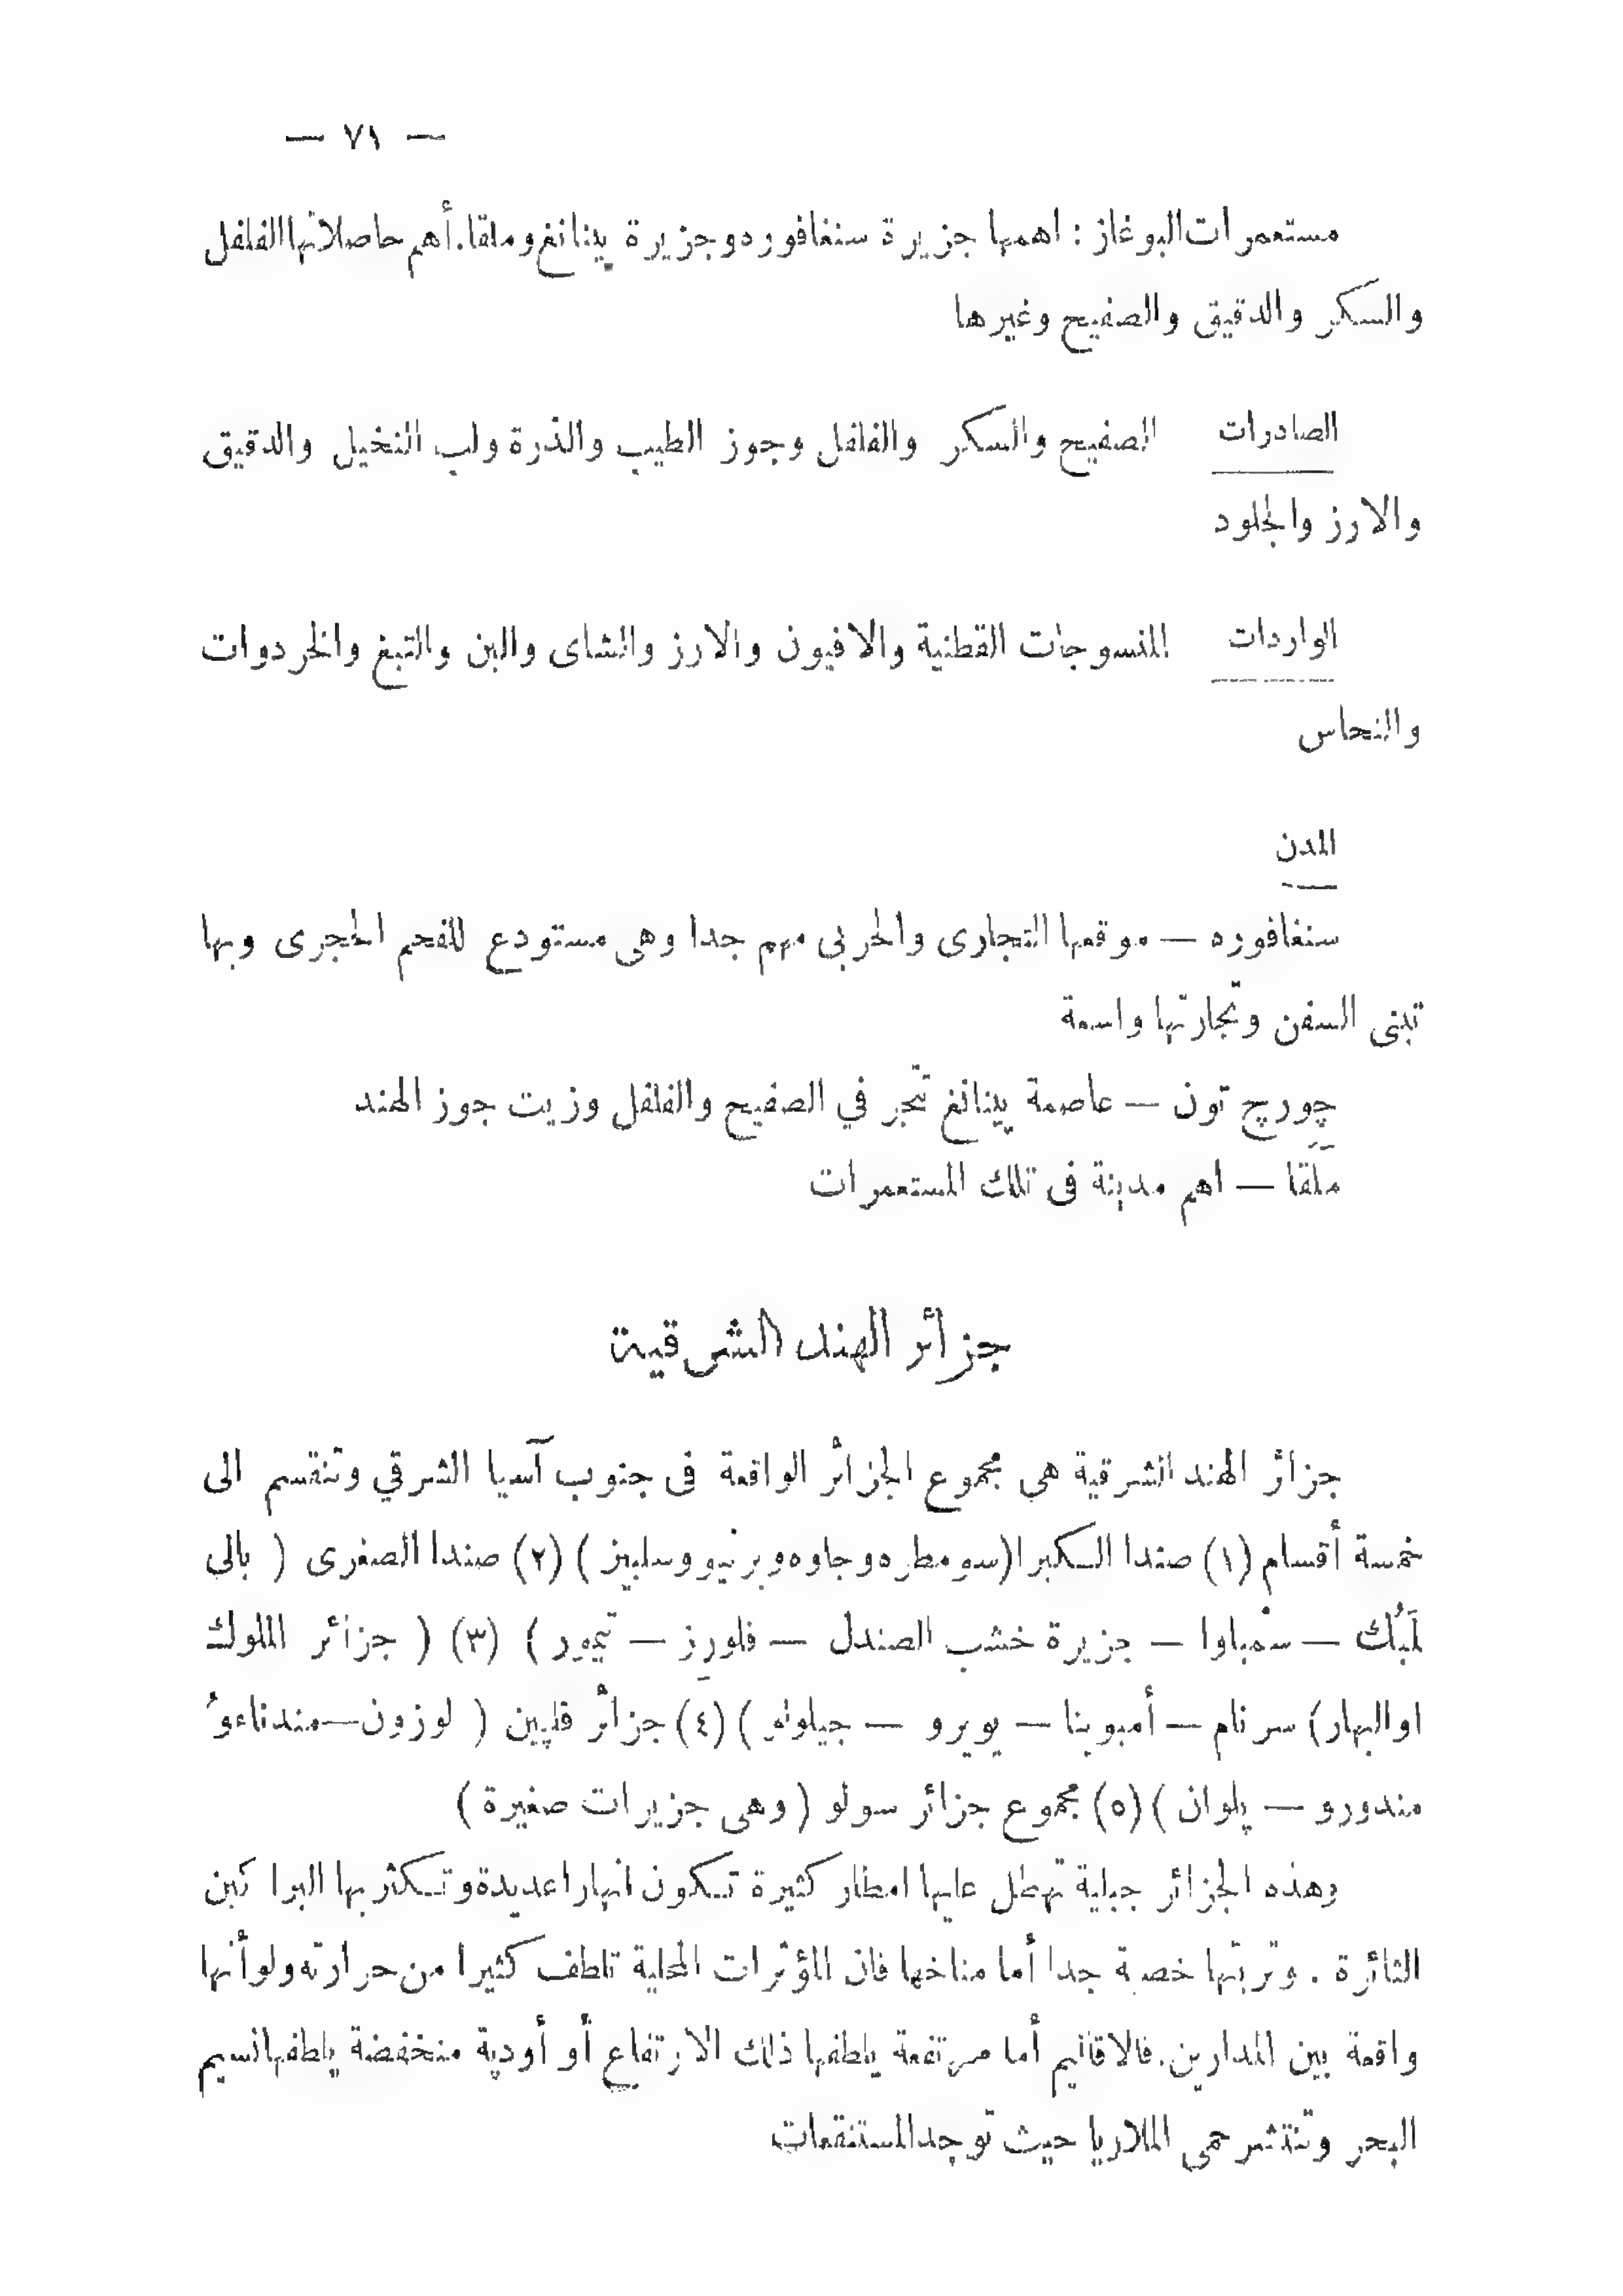 — ٧١ —
مستعمرات البوغاز : اهمها جزيرة سنغافوره وجزيرة پينانغ وملقا. أهم حاصلاتها الفلفل
والسكر والدقيق والصفيح وغيرها
الصادرات الصفيح والسكر والفلفل وجوز الطيب والذرة ولب النخيل والدقيق
والارز والجلود
الواردات المنسوجات القطنية والافيون والارز والشاى والبن والتبغ والخردوات
والنحاس
المدن
سنغافوره — موقعها التجارى والحربى مهم جدا وهى مستودع للفحم الحجرى وبها
تبنى السفن وتجارتها واسعة
چورچ تون — عاصمة پينانغ تتجر في الصفيح والفلفل وزيت جوز الهند
ملقا — اهم مدينة فى تلك المستعمرات
جزائر الهند الشرقية
جزائر الهند الشرقية هى مجموع الجزائر الواقعة فى جنوب آسيا الشرقي وتنقسم الى
خمسة أقسام (١) صندا الكبرا (سومطره وجاوه وبرنيو وسلبيز ) (٢) صندا الصغرى ( بالى
لَمبُك — سمباوا — جزيرة خشب الصندل — فلورِز — تيمور ) (٣) ( جزائر الملوك
او البهار) سرنام — أمبوينا — بويرو — جيلولو ) (٤) جزائر فلپين ( لوزون — مندناءوُ
مندورو — پلوان ) (٥) مجموع جزائر سولو ( وهى جزيرات صغيرة )
وهذه الجزائر جبلية تهطل عليها امطار كثيرة تكون انهارا عديدة وتكثر بها البراكين
الثائرة . وتربتها خصبة جدا أما مناخها فان المؤثرات المحلية تلطف كثيرا من حرارته ولو أنها
واقعة بين المدارين. فالاقاليم أما مرتفعة يلطفها ذلك الارتفاع أو أودية منخفضة يلطفها نسيم
البحر وتنتشر حمى الملاريا حيث توجد المستنقعات